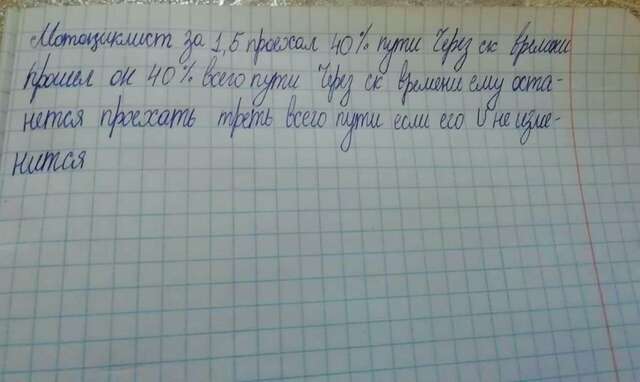 Мотоциклист за 1,5 проехал 40% пути Через ск времени
прошел он 40% всего пути Через ск времени ему оста-
нется проехать треть всего пути если его V не изме-
нится